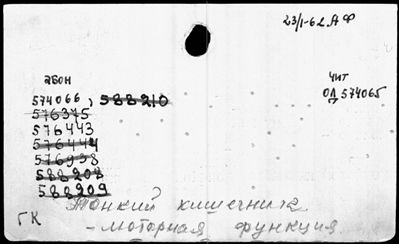 23/I-62.АФ
абон
чит
574066, 588210
ОД 574065
576375
576443
576444
576998
588208
588209
Тонкий кишечника
ГК
- моторная функция